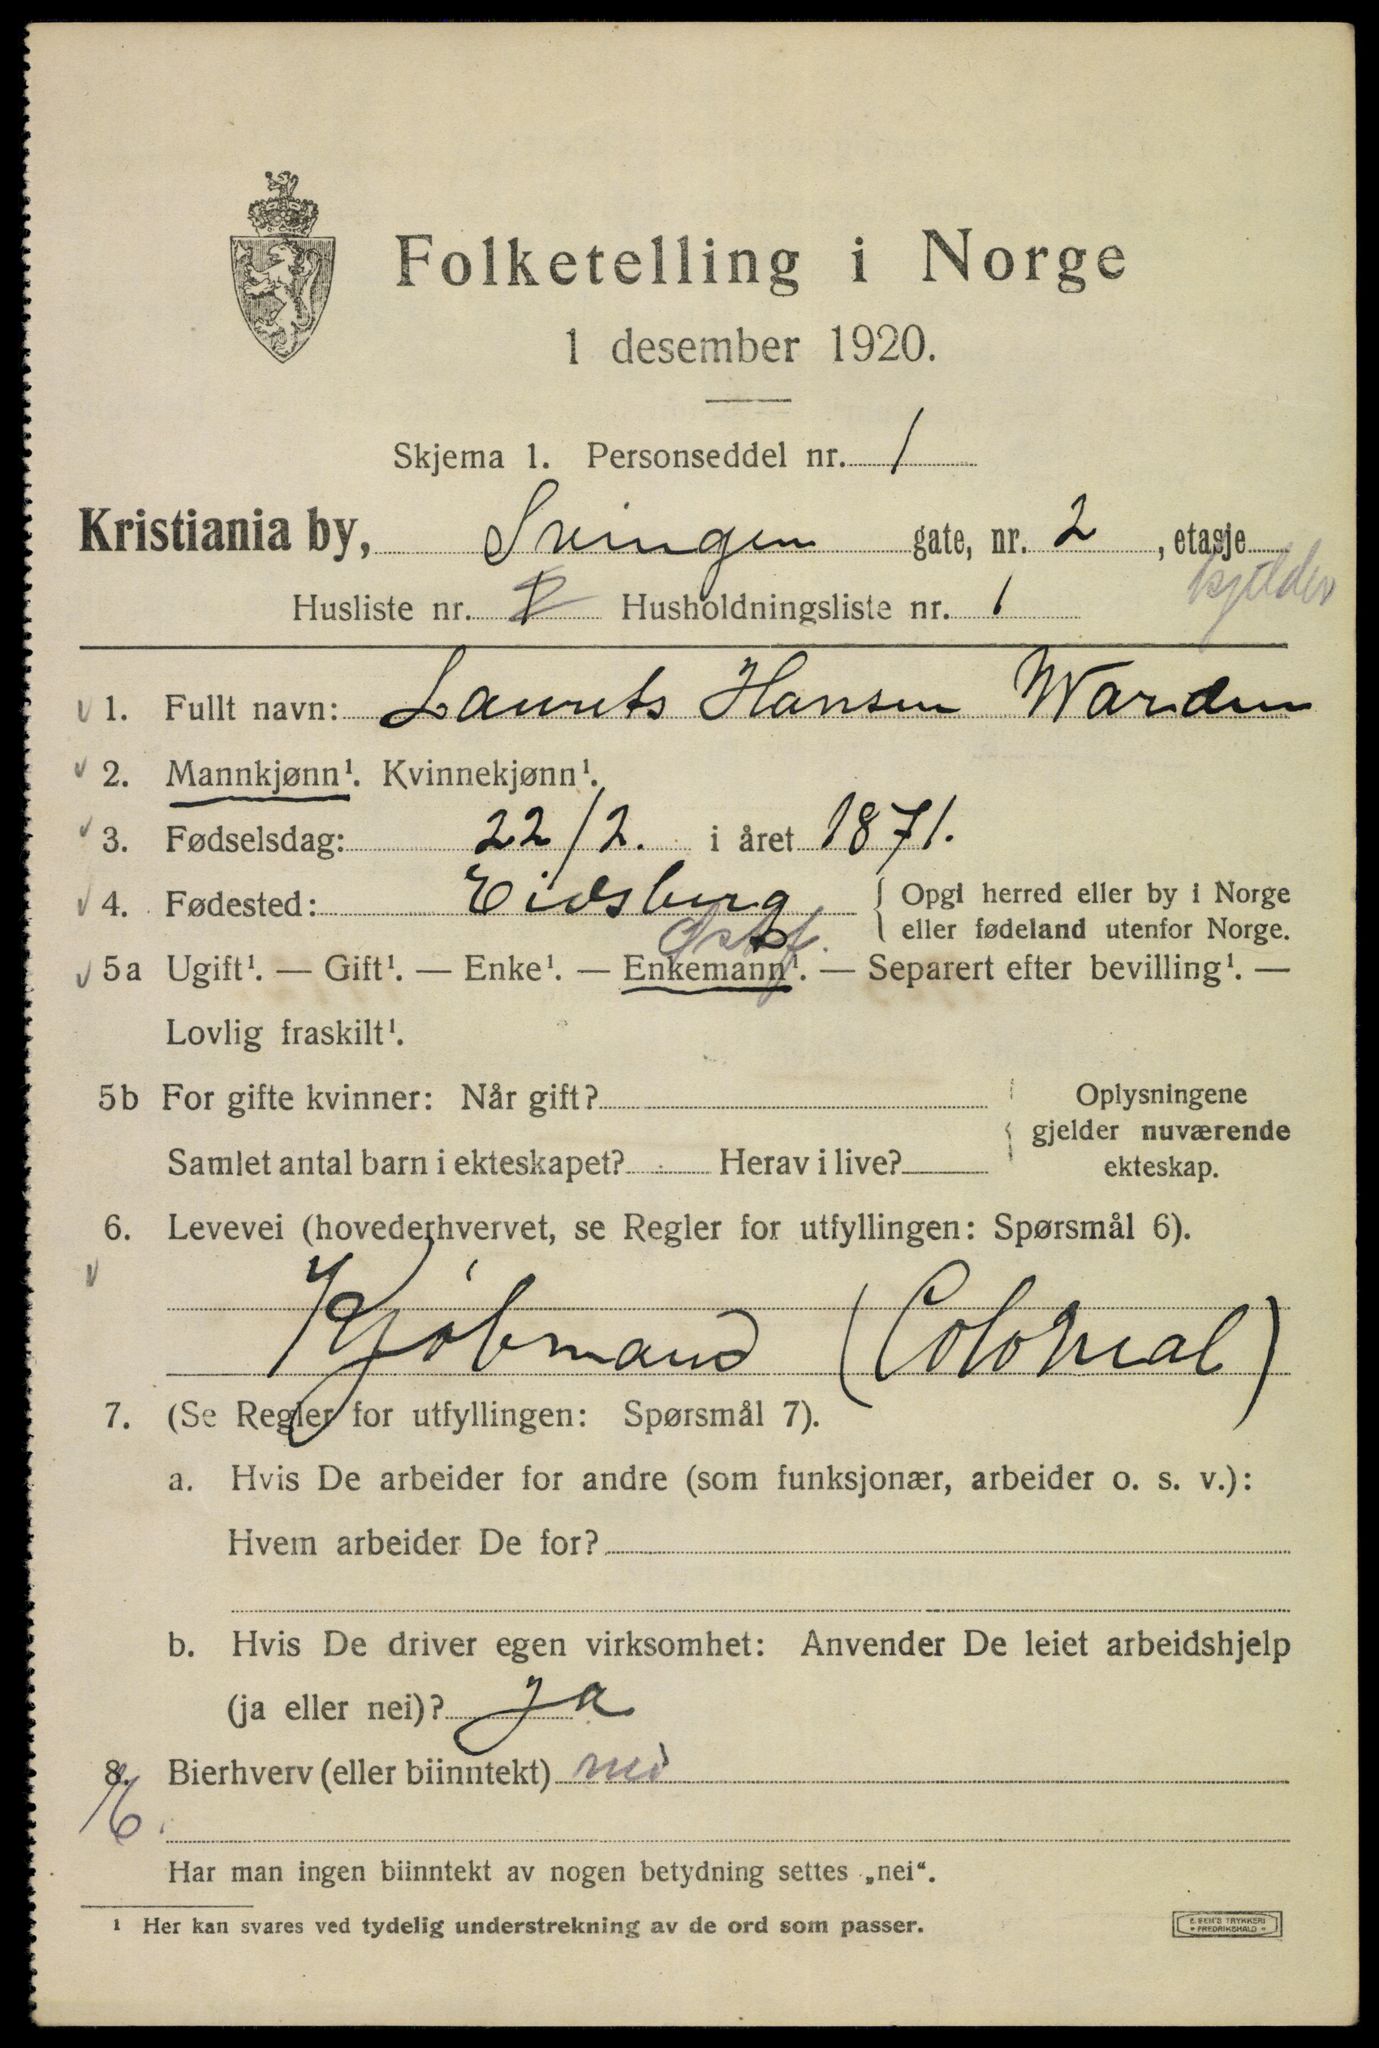 Folketelling i Norge
1 desember 1920.
Skjema 1. Personseddel nr. 1
Kristiania by, Svingen gate, nr. 2, etasje kjelder
Husliste nr. Husholdningsliste nr. 1
1. Fullt navn: Laurits Hansen Warden
2. Mannkjønn¹. Kvinnekjønn¹.
3. Fødselsdag: 22/2. i året 1871.
4. Fødested: Eidsberg Østf. Opgi herred eller by i Norge
eller fødeland utenfor Norge.
5a Ugift¹. — Gift¹. — Enke¹. — Enkemann¹. — Separert efter bevilling¹. —
Lovlig fraskilt¹.
5b For gifte kvinner: Når gift?
Samlet antal barn i ekteskapet? Herav i live?
Oplysningene
gjelder nuværende
ekteskap.
6. Levevei (hovederhvervet, se Regler for utfyllingen: Spørsmål 6).
Kjöbmand (Colonial)
7. (Se Regler for utfyllingen: Spørsmål 7).
a. Hvis De arbeider for andre (som funksjonær, arbeider o. s. v.):
Hvem arbeider De for?
b. Hvis De driver egen virksomhet: Anvender De leiet arbeidshjelp
(ja eller nei)? ja
8. Bierhverv (eller biinntekt) nei
Har man ingen biinntekt av nogen betydning settes „nei“.
¹ Her kan svares ved tydelig understrekning av de ord som passer.
E. SEM'S TRYKKERI
• FREDRIKSHALD •